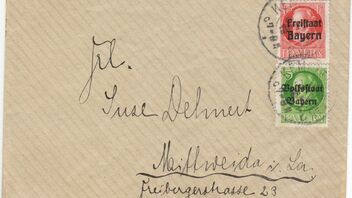 Freistaat
Bayern
BAYERN
5
Volksstaat
Bayern
Frl.
Suse Dehnert
Mittweida i. Sa.
Freibergerstrasse 23